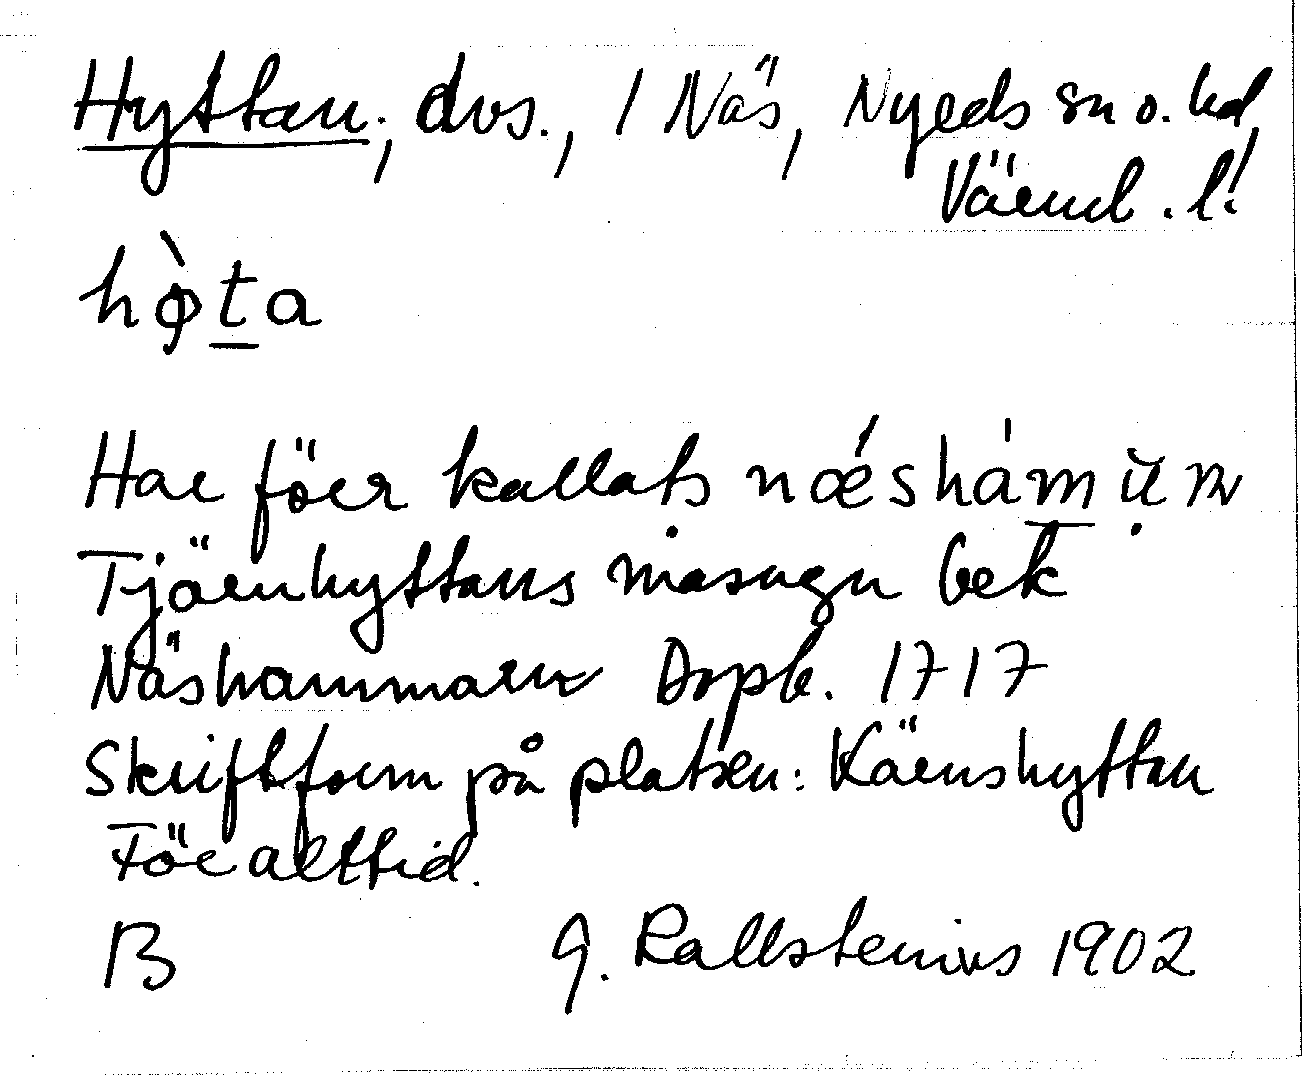 Hyttan, dvs., 1 Näs, Nyeds sn o. hd,
Värml. l.
hø̀ta
Har förr kallats nǽshámŭn
Tjärnhyttans masugn bek
Näshammarn Dopb. 1717
Skriftform på platsen: Kärnshyttan
För alltid.
B G. Kallstenius 1902